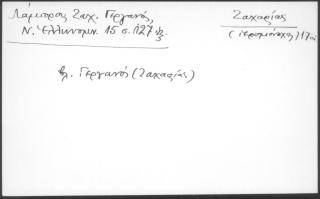 Λάμπρος Ζαχ. Γεργανός,
Ν. Ἑλληνομν. 15 σ. 127 κἑ.
Ζαχαρίας
(ἱερομόναχος) 17
βλ. Γεργανός (Ζαχαρίας)